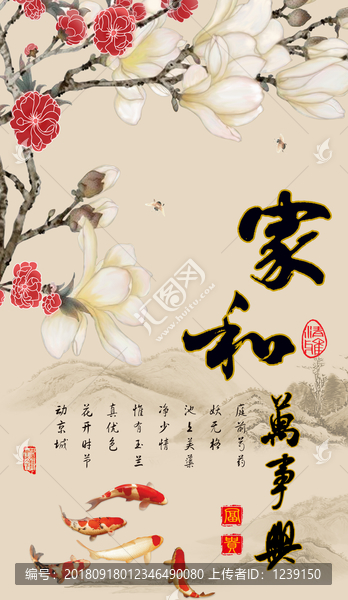 家和
萬事興
富
貴
庭前芍药
妖无格
池上芙蕖
净少情
惟有玉兰
真优色
花开时节
动京城
汇图网
编号：20180918012346490080 上传者ID：1239150